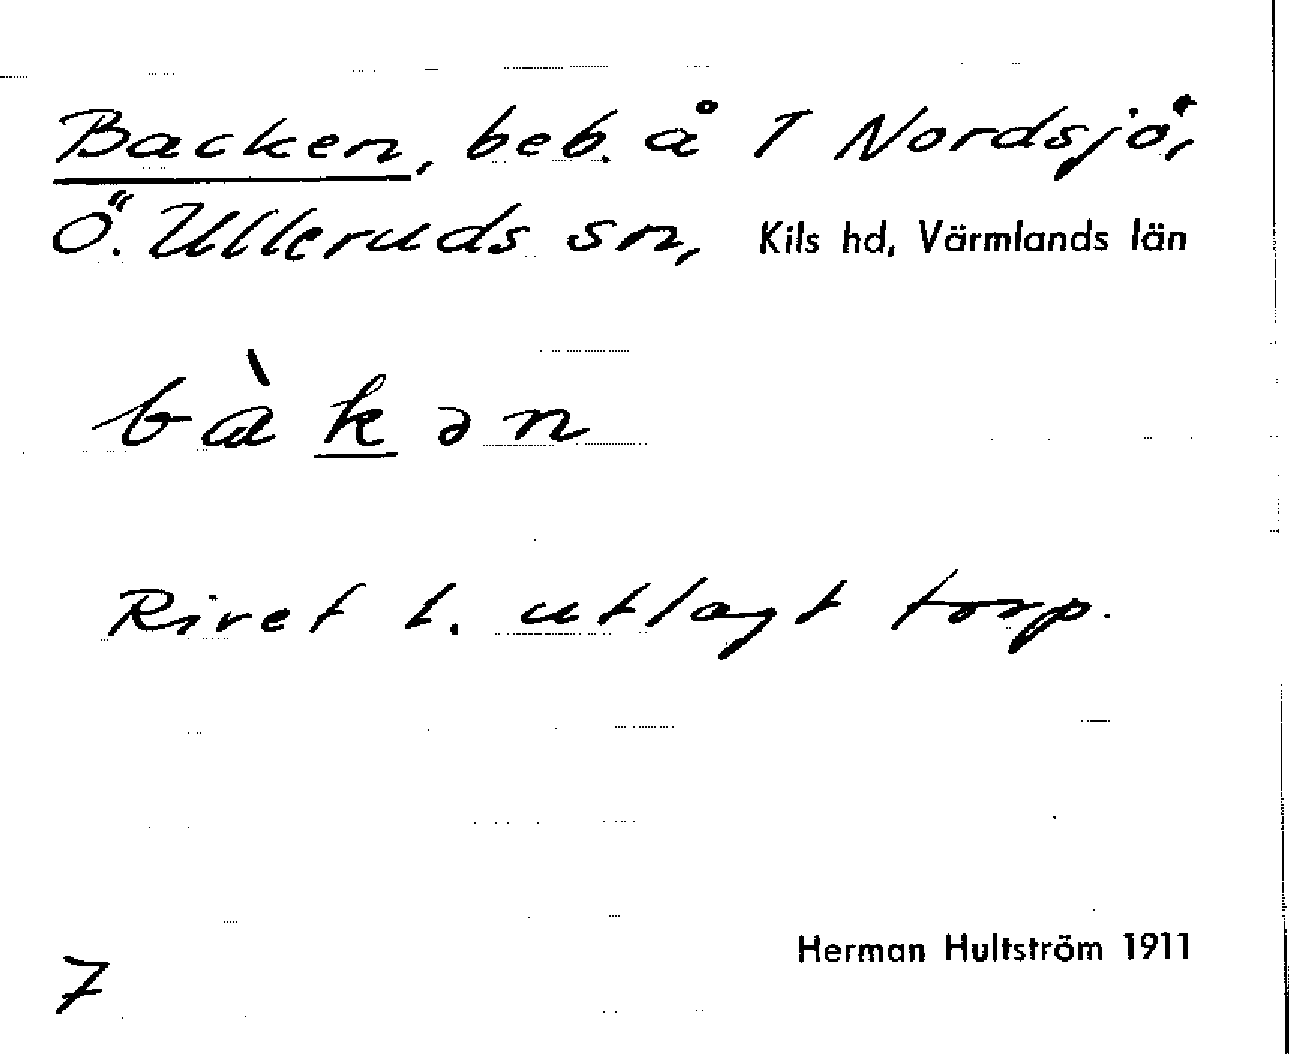 Backen, beb. å 1 Nordsjö,
Ö. Ulleruds sn, Kils hd, Värmlands län
bàkən
Rivet l. utlagt torp.
Herman Hultström 1911
7